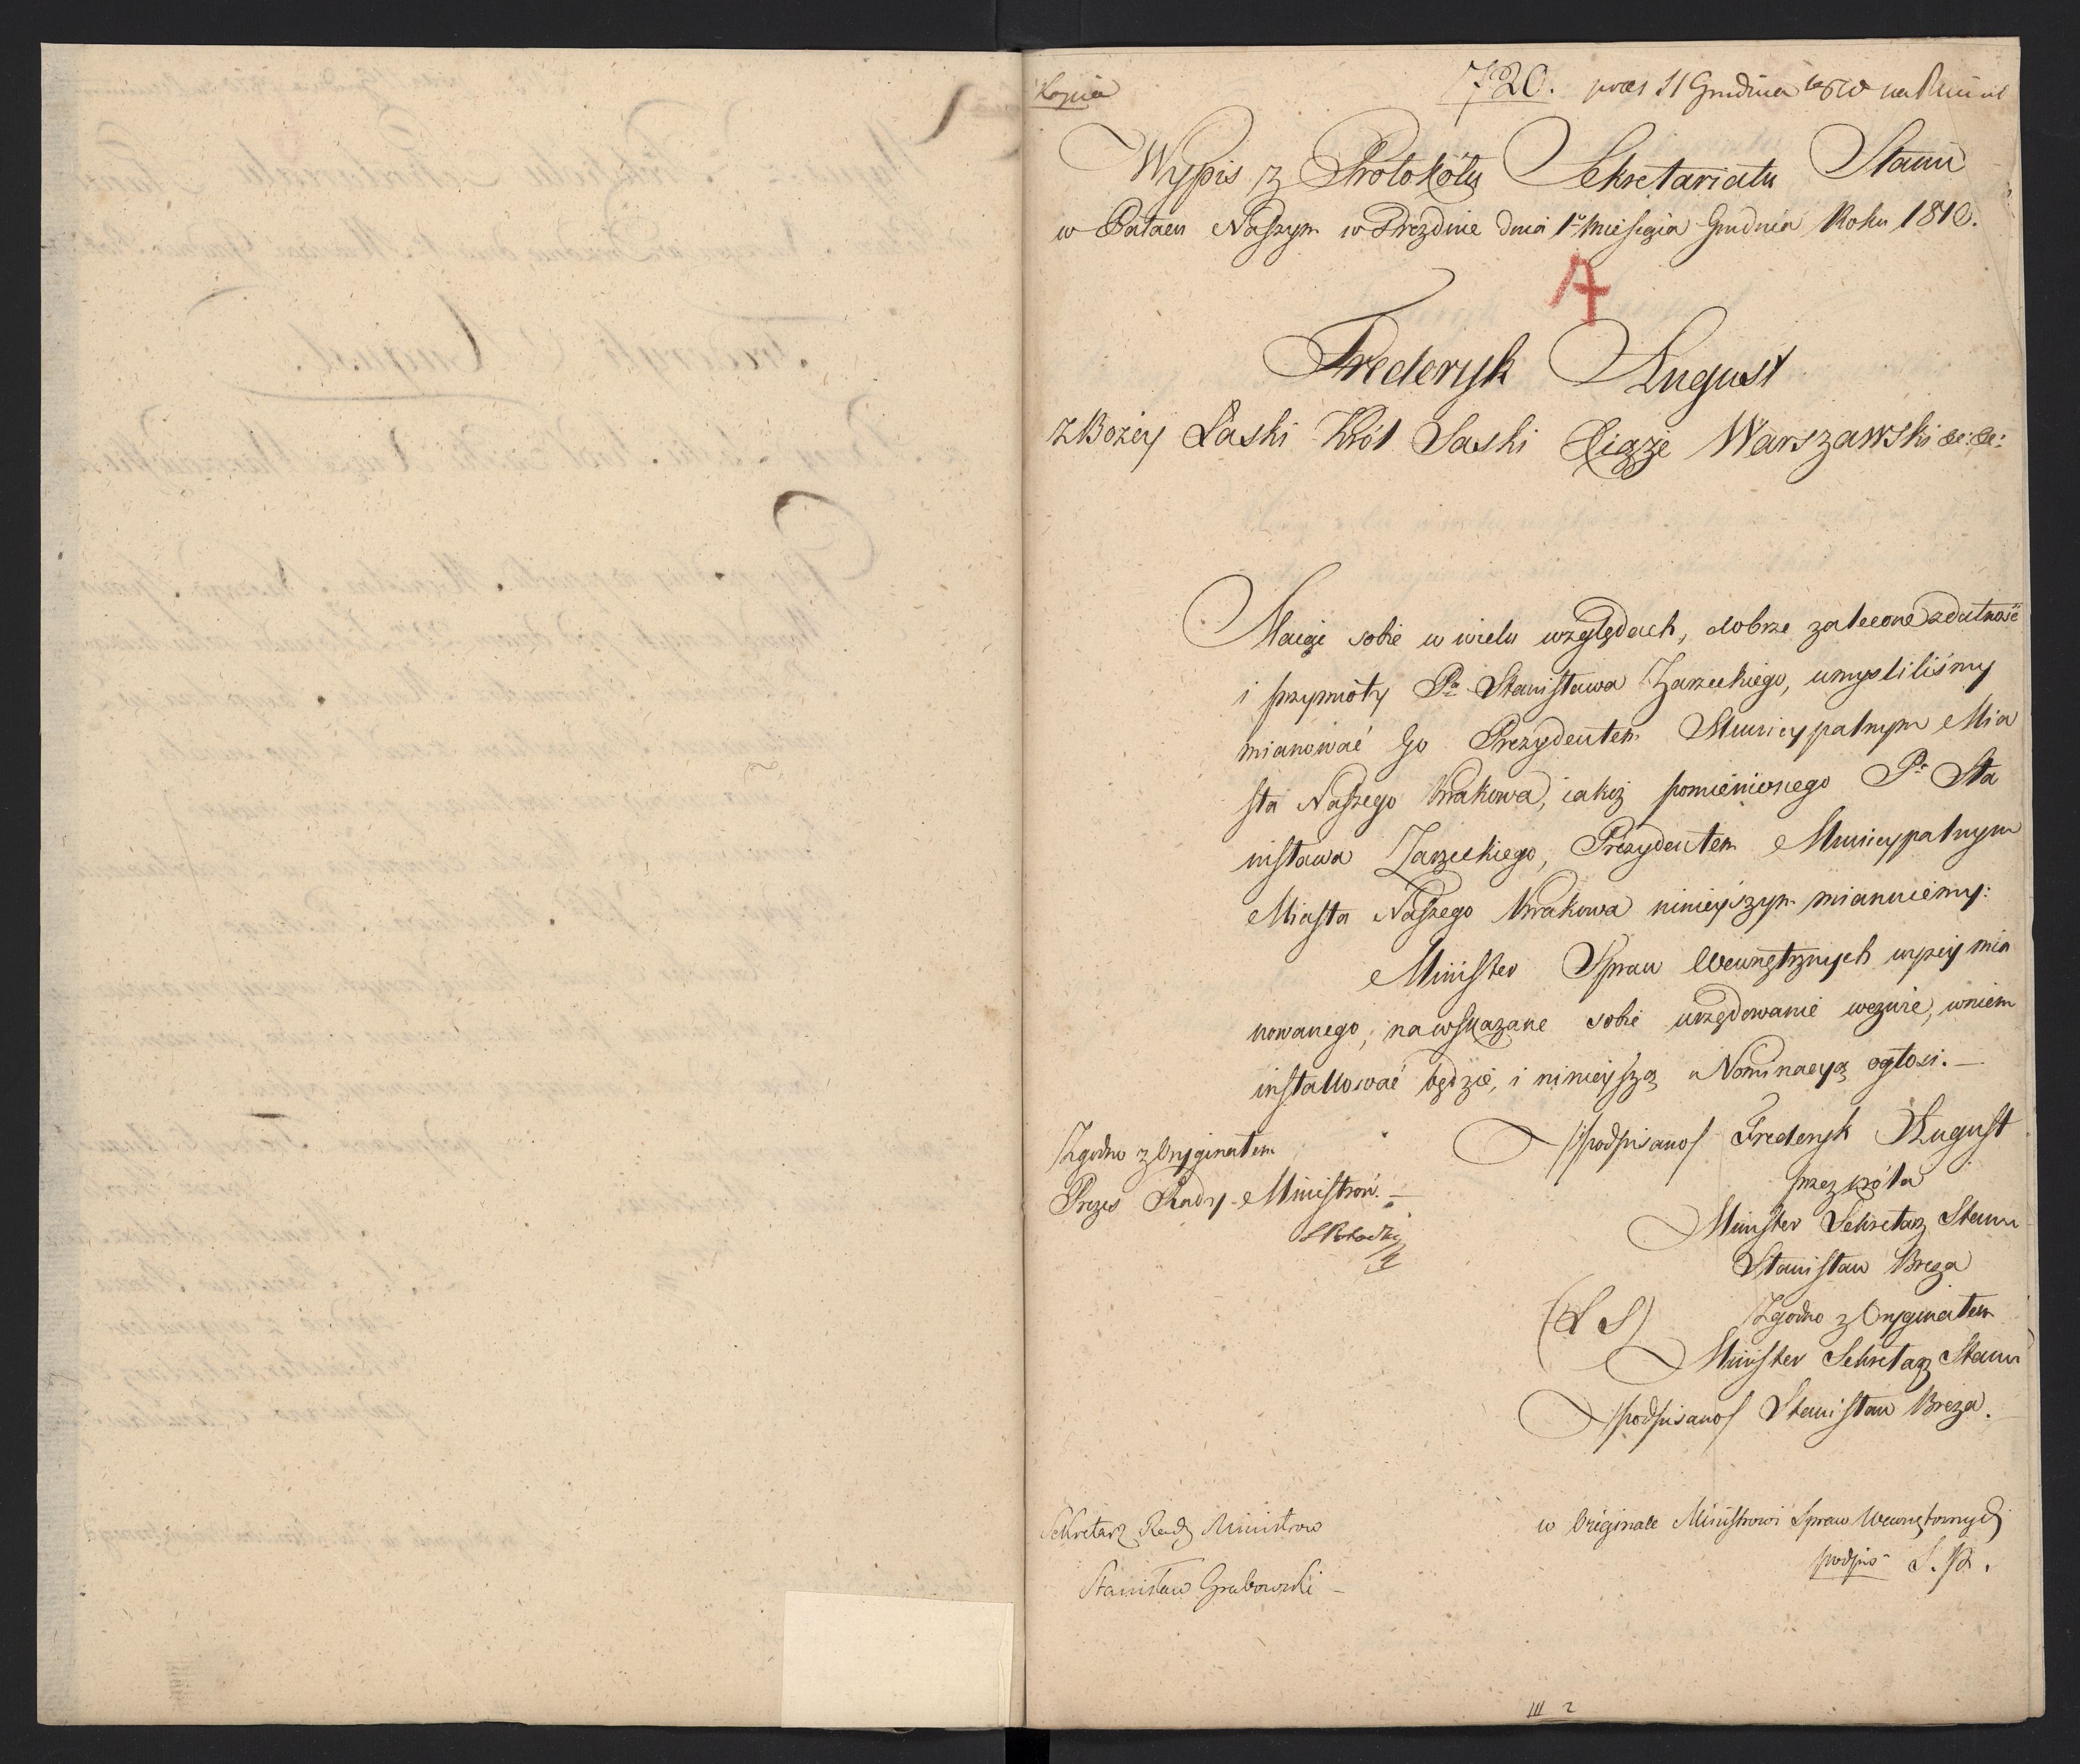 Kopia
720. prez 11 Grudnia 1810
Wypis z Protokółu Sekretariatu Stanu
w Pałacu Naszym w Drezdnie dnia 1o Miesiąca Grudnia Roku 1810.
A
Frederyk August
z Bożey Łaski Król Saski Xiąże Warszawski &c: &c:
Maiąc sobie w wielu względach, dobrze zalecone zdatność
i przymioty Pa Stanisława Zarzeckiego, umysliliśmy
mianować Go Prezydentem Municypalnym Mia
sta Naszego Krakowa, iakoż pomienionego Pa Sta
nisława Zarzeckiego, Prezydentem Municypalnym
Miasta Naszego Krakowa ninieyszym mianuiemy:
Minister Spraw Wewnętrznych wyzey mia
nowanego, na wskazane sobie urzędowanie wezwie, w niem
installować będzie, i ninieyszą Nominacyą ogłosi. —
/podpisano/ Frederyk August
przez Króla
Minister Sekretarz Stanu
Stanisław Breza
(L S) Zgodno z Oryginałem
Minister Sekretarz Stanu
/podpisano/ Stanisław Breza.
Zgodno z Oryginałem
Prezes Rady Ministrów. —
S Potocki
Sekretarz Rady Ministrow
Stanisław Grabowski —
w Originale Ministrowi Spraw Wewnętrznych
podpis S. P.
III 2